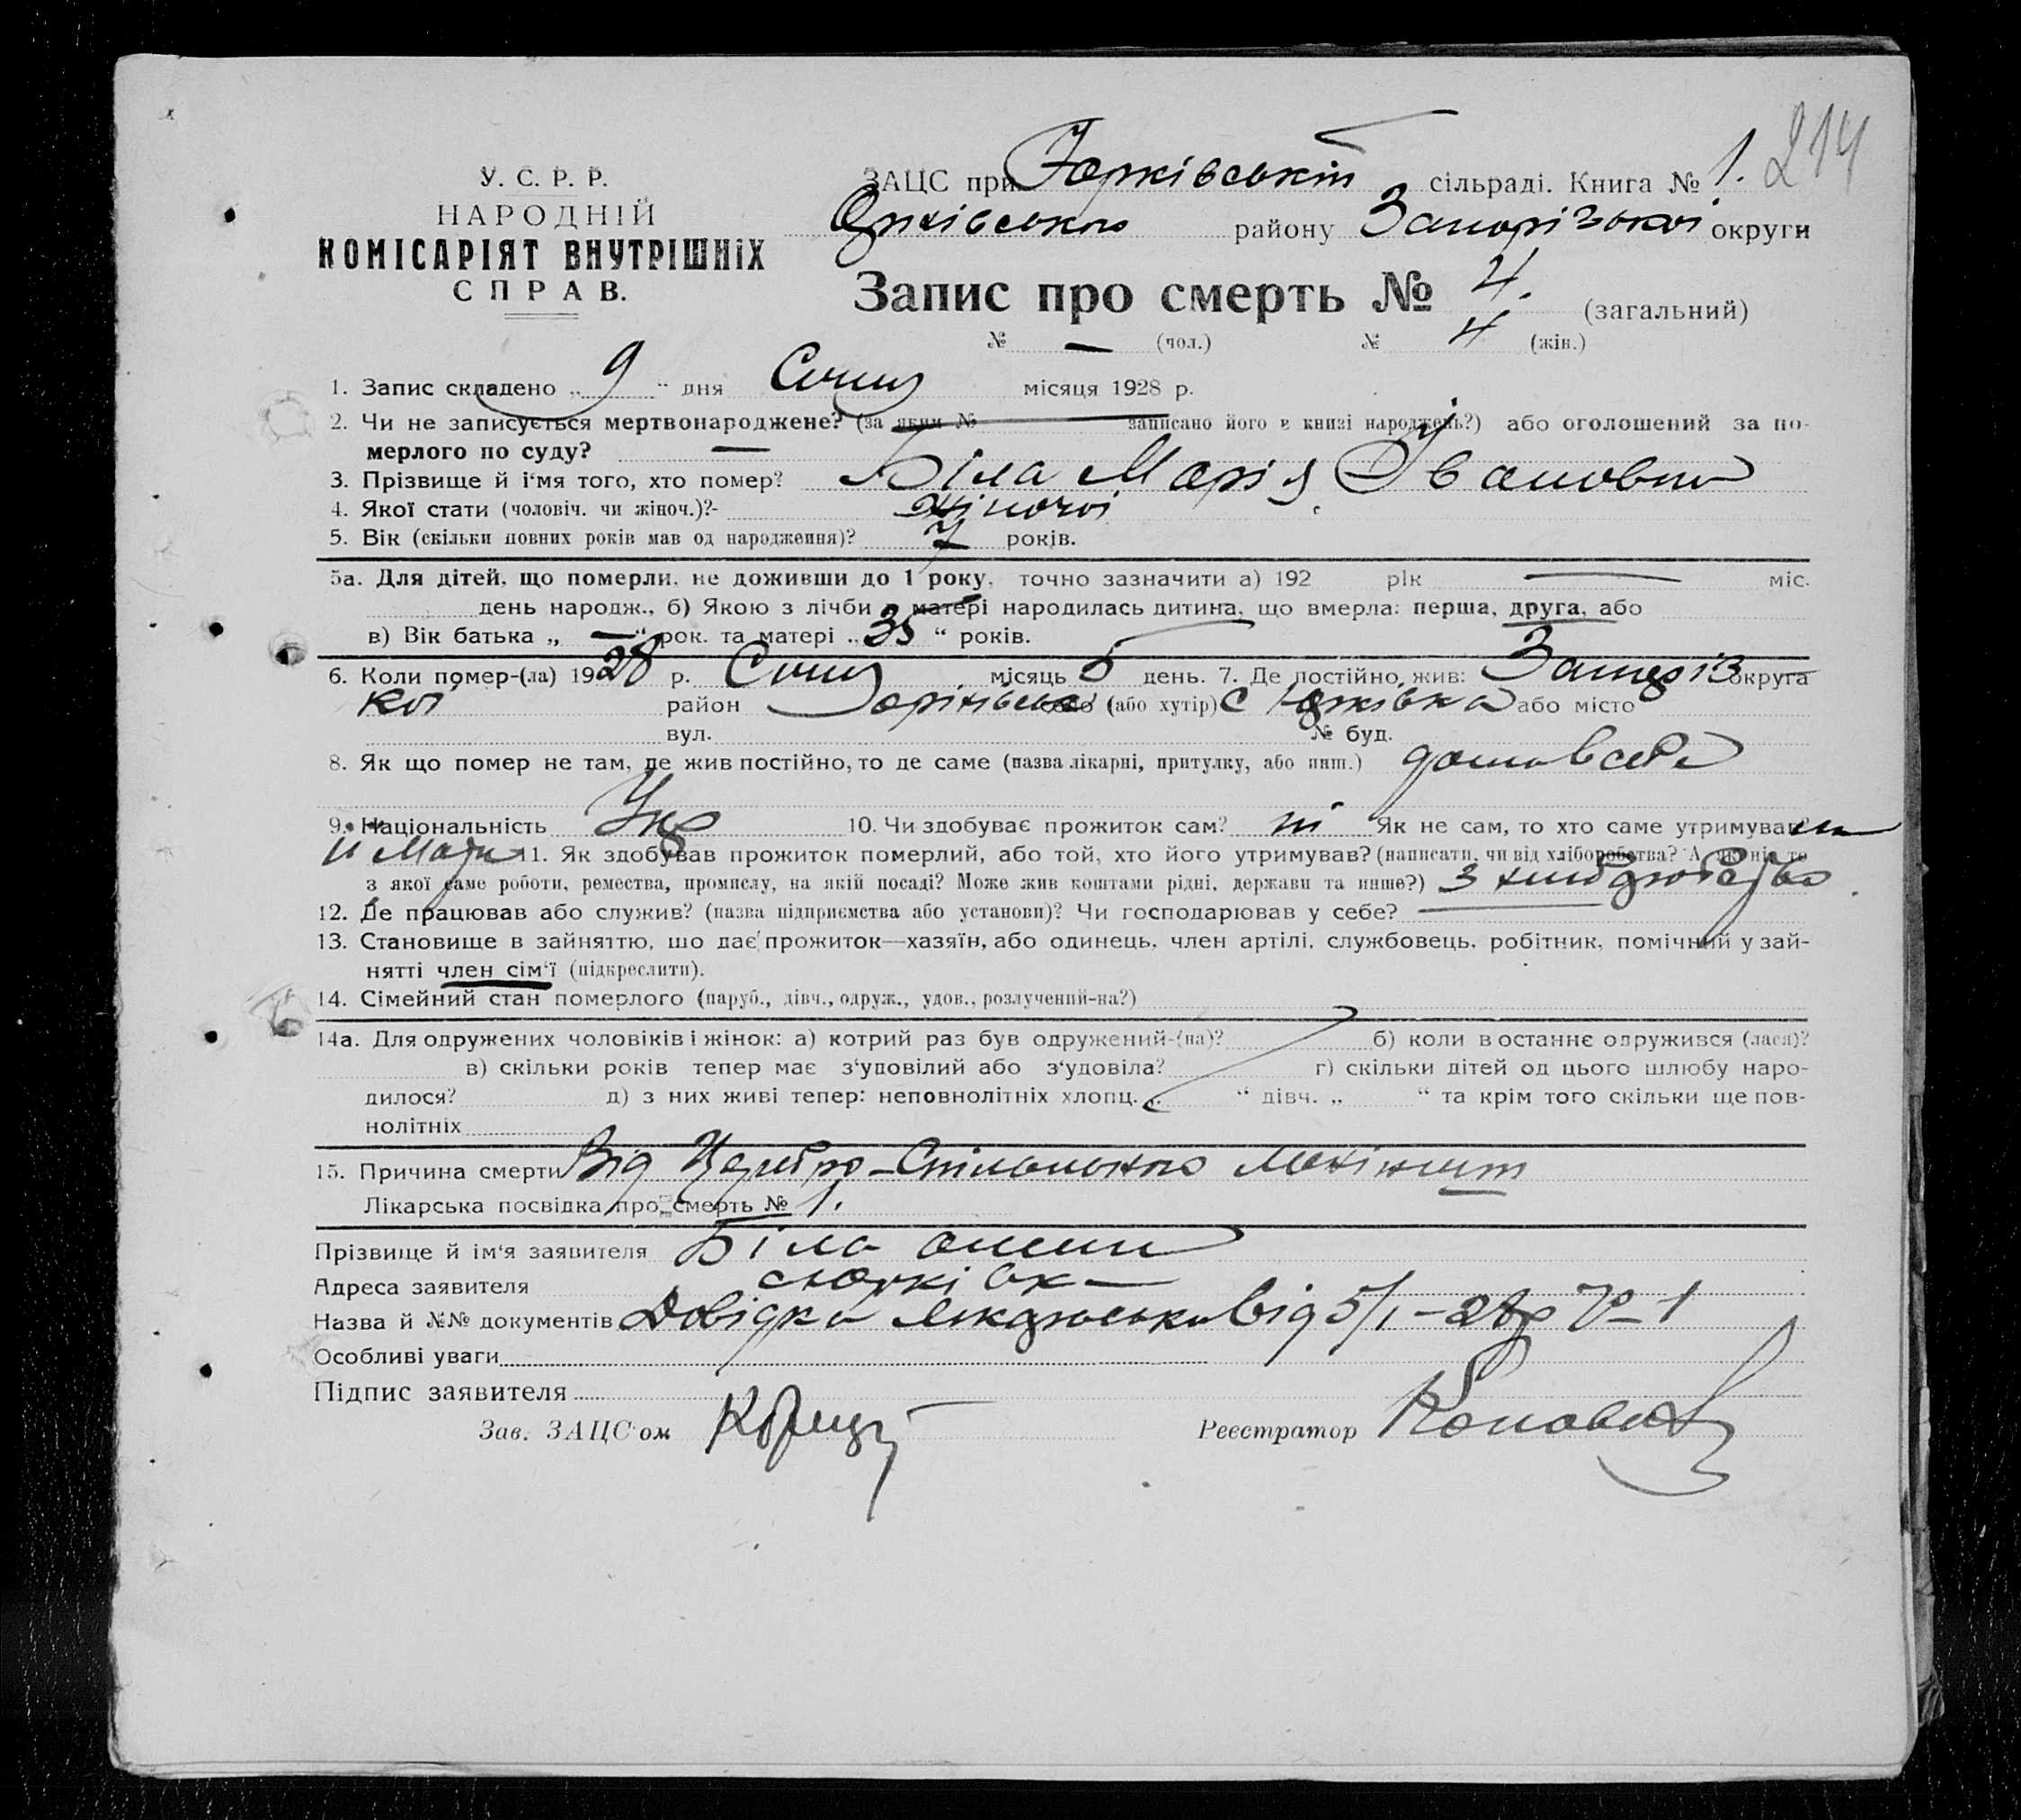 214
У. С. Р. Р.
НАРОДНІЙ
КОМІСАРІЯТ ВНУТРІШНІХ
СПРАВ.
ЗАЦС при Юрківській сільраді. Книга № 1.
Оріхівського району Запорізької округи
Запис про смерть № 4. (загальний)
№ — (чол.) № 4 (жін.)
1. Запис складено „ 9 “ дня Січня місяця 1928 р.
2. Чи не записується мертвонароджене? (за яким № записано його в книзі народжень?) або оголошений за по-
мерлого по суду? —
3. Прізвище й і‘мя того, хто помер? Біла Марія Івановна
4. Якої стати (чоловіч. чи жіноч.)?- жіночої
5. Вік (скільки повних років мав од народження)? 7 років.
5а. Для дітей, що померли, не доживши до 1 року, точно зазначити а) 192 рік — міс.
день народж., б) Якою з лічби у матері народилась дитина, що вмерла: перша, друга, або
в) Вік батька „ — “ рок. та матері „ 35 “ років.
6. Коли помер-(ла) 1928 р. Січня місяць 5 день. 7. Де постійно жив: Запоріз округа
кої район Оріхівськ село (або хутір) с Юрківка або місто
вул. № буд.
8. Як що помер не там, де жив постійно, то де саме (назва лікарні, притулку, або инш.) дома в себе
9. Національність Укр 10. Чи здобуває прожиток сам? ні Як не сам, то хто саме утримував?
її Мати 11. Як здобував прожиток померлий, або той, хто його утримував? (написати, чи від хліборобства? А як ні, то
з якої саме роботи, ремества, промислу, на якій посаді? Може жив коштами рідні, держави та инше?) З хліборобства
12. Де працював або служив? (назва підприємства або установи)? Чи господарював у себе? —
13. Становище в зайняттю, що дає прожиток—хазяїн, або одинець, член артілі, службовець, робітник, помічний у зай-
нятті член сім‘ї (підкреслити).
14. Сімейний стан померлого (паруб., дівч., одруж., удов., розлучений-на?)
14а. Для одружених чоловіків і жінок: а) котрий раз був одружений-(на)? б) коли в останнє одружився (лася)?
в) скільки років тепер має з‘удовілий або з‘удовіла? г) скільки дітей од цього шлюбу наро-
дилося? д) з них живі тепер: неповнолітніх хлопц. „ “ дівч. „ “ та крім того скільки ще пов-
нолітніх
15. Причина смерти Від Церебро-Спінального Менінгит
Лікарська посвідка про смерть № 1.
Прізвище й ім‘я заявителя Біла
Адреса заявителя с Юрківка
Назва й №№ документів Довідка лікарська від 5/I-28р № 1
Особливі уваги
Підпис заявителя
Зав. ЗАЦС‘ом
Реєстратор